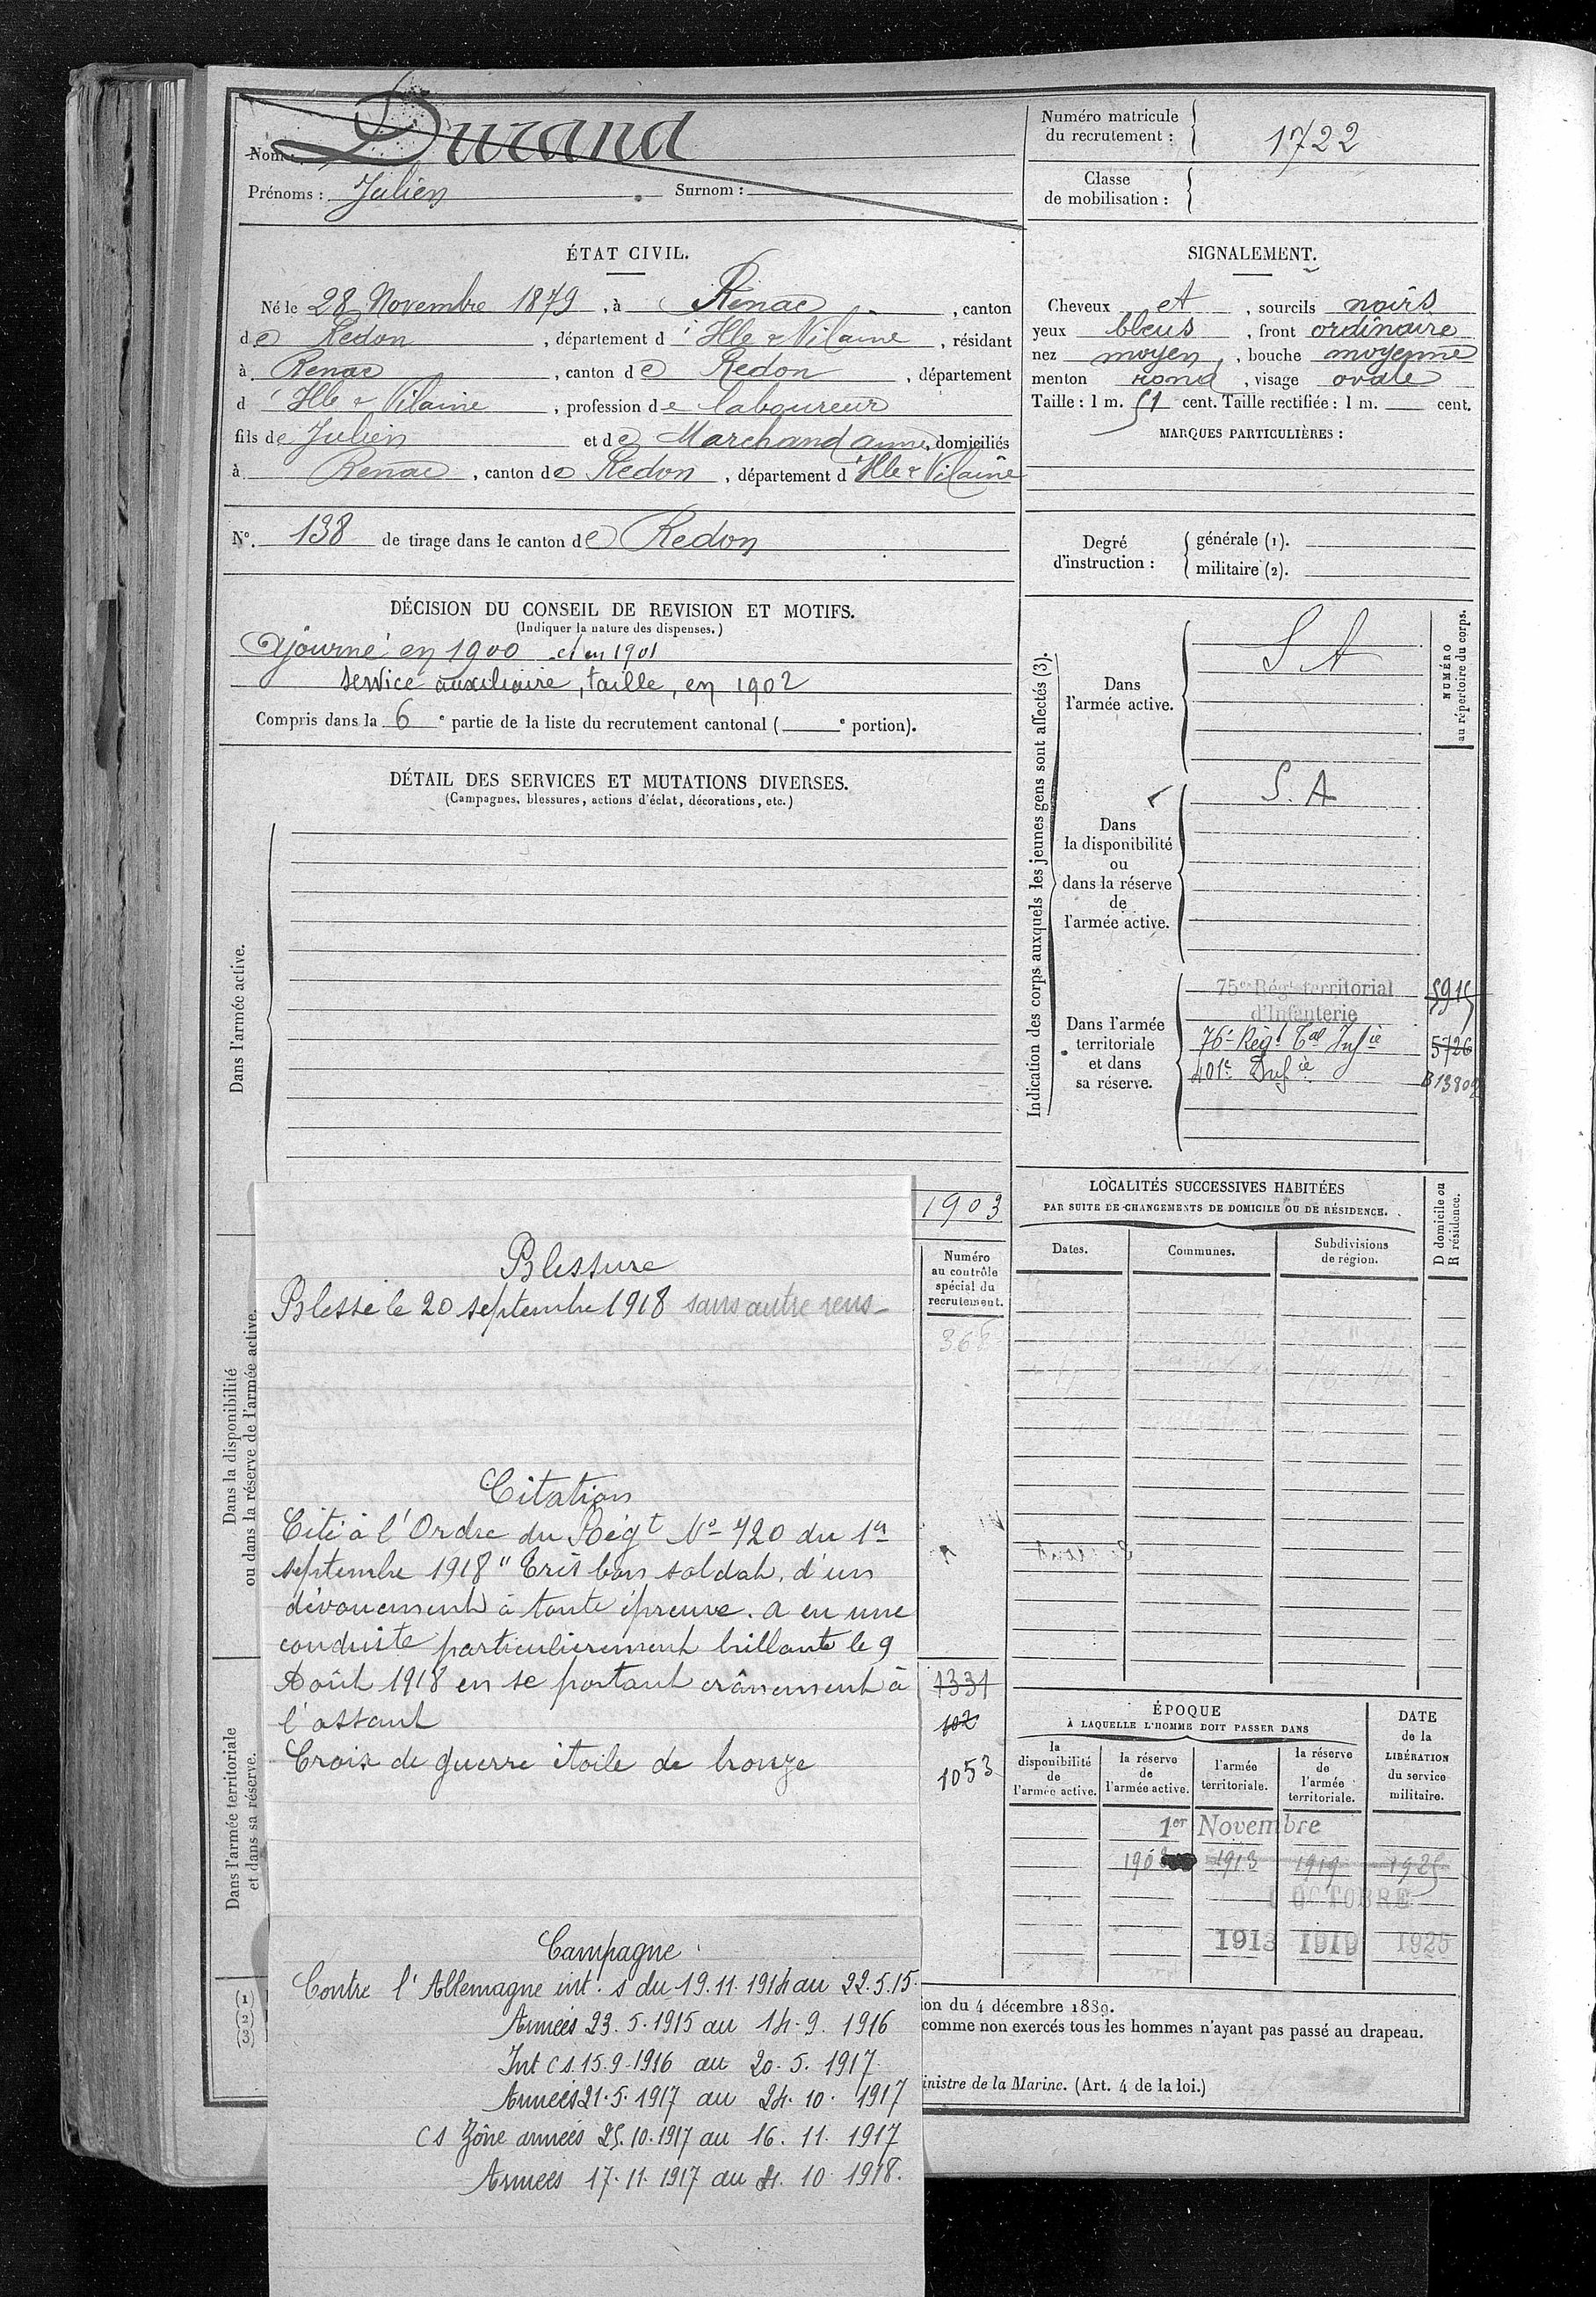 Nom : Durand
Prénoms : Julien Surnom :
Numéro matricule
du recrutement : 1722
Classe
de mobilisation :
ÉTAT CIVIL.
Né le 28 Novembre 1879, à Renac, canton
de Redon, département d'Ille & Vilaine, résidant
à Renac, canton de Redon, département
d'Ille & Vilaine, profession de laboureur
fils de Julien et de Marchand Anne, domiciliés
à Renac, canton de Redon, département d'Ille & Vilaine
N°. 138 de tirage dans le canton de Redon
SIGNALEMENT.
Cheveux et, sourcils noirs
yeux bleus, front ordinaire
nez moyen, bouche moyenne
menton rond, visage ovale
Taille : 1 m. 51 cent. Taille rectifiée : 1 m. cent.
MARQUES PARTICULIÈRES :
Degré
d'instruction :
générale (1).
militaire (2).
DÉCISION DU CONSEIL DE REVISION ET MOTIFS.
(Indiquer la nature des dispenses.)
Ajourné en 1900 et en 1901
service auxiliaire, taille, en 1902
Compris dans la 6e partie de la liste du recrutement cantonal ( e portion).
DÉTAIL DES SERVICES ET MUTATIONS DIVERSES.
(Campagnes, blessures, actions d'éclat, décorations, etc.)
Dans l'armée active.
Dans la disponibilité
ou dans la réserve de l'armée active.
Dans l'armée territoriale
et dans sa réserve.
(1)
(2)
(3)
Blessure
Blessé le 20 septembre 1918 sans autre rens-
Citation
Cité à l'Ordre du Régt No 720 du 1er
septembre 1918 "Très bon soldat, d'un
dévouement à toute épreuve. a eu une
conduite particulièrement brillante le 9
Août 1918 en se portant crânement à
l'assaut
Croix de guerre étoile de bronze
Campagne
Contre l'Allemagne int. s du 19.11.1914 au 22.5.15.
Armées 23.5.1915 au 14.9.1916
Int cs 15.9.1916 au 20.5.1917
Armées 21.5.1917 au 24.10.1917
cs Zône armées 25.10.1917 au 16.11.1917
Armées 17.11.1917 au 21.10.1918.
1903
Numéro
au contrôle
spécial du
recrutement.
1331
102
1053
Indication des corps auxquels les jeunes gens sont affectés (3).
NUMÉRO
au répertoire du corps.
Dans
l'armée active.
S A
Dans
la disponibilité
ou
dans la réserve
de
l'armée active.
S. A
Dans l'armée
territoriale
et dans
sa réserve.
75e Régt territorial
d'Infanterie
5915
76e Régt Tal Infie 5726
401e Infie B13802
LOCALITÉS SUCCESSIVES HABITÉES
PAR SUITE DE CHANGEMENTS DE DOMICILE OU DE RÉSIDENCE.
D domicile ou
R résidence.
Dates. Communes. Subdivisions
de région.
ÉPOQUE
À LAQUELLE L'HOMME DOIT PASSER DANS
la
disponibilité
de
l'armée active.
la réserve
de
l'armée active.
l'armée
territoriale.
la réserve
de
l'armée
territoriale.
DATE
de la
LIBÉRATION
du service
militaire.
1er Novembre
1913 1919 1925
OCTOBRE
1913 1919 1925
ion du 4 décembre 1889.
comme non exercés tous les hommes n'ayant pas passé au drapeau.
inistre de la Marine. (Art. 4 de la loi.)